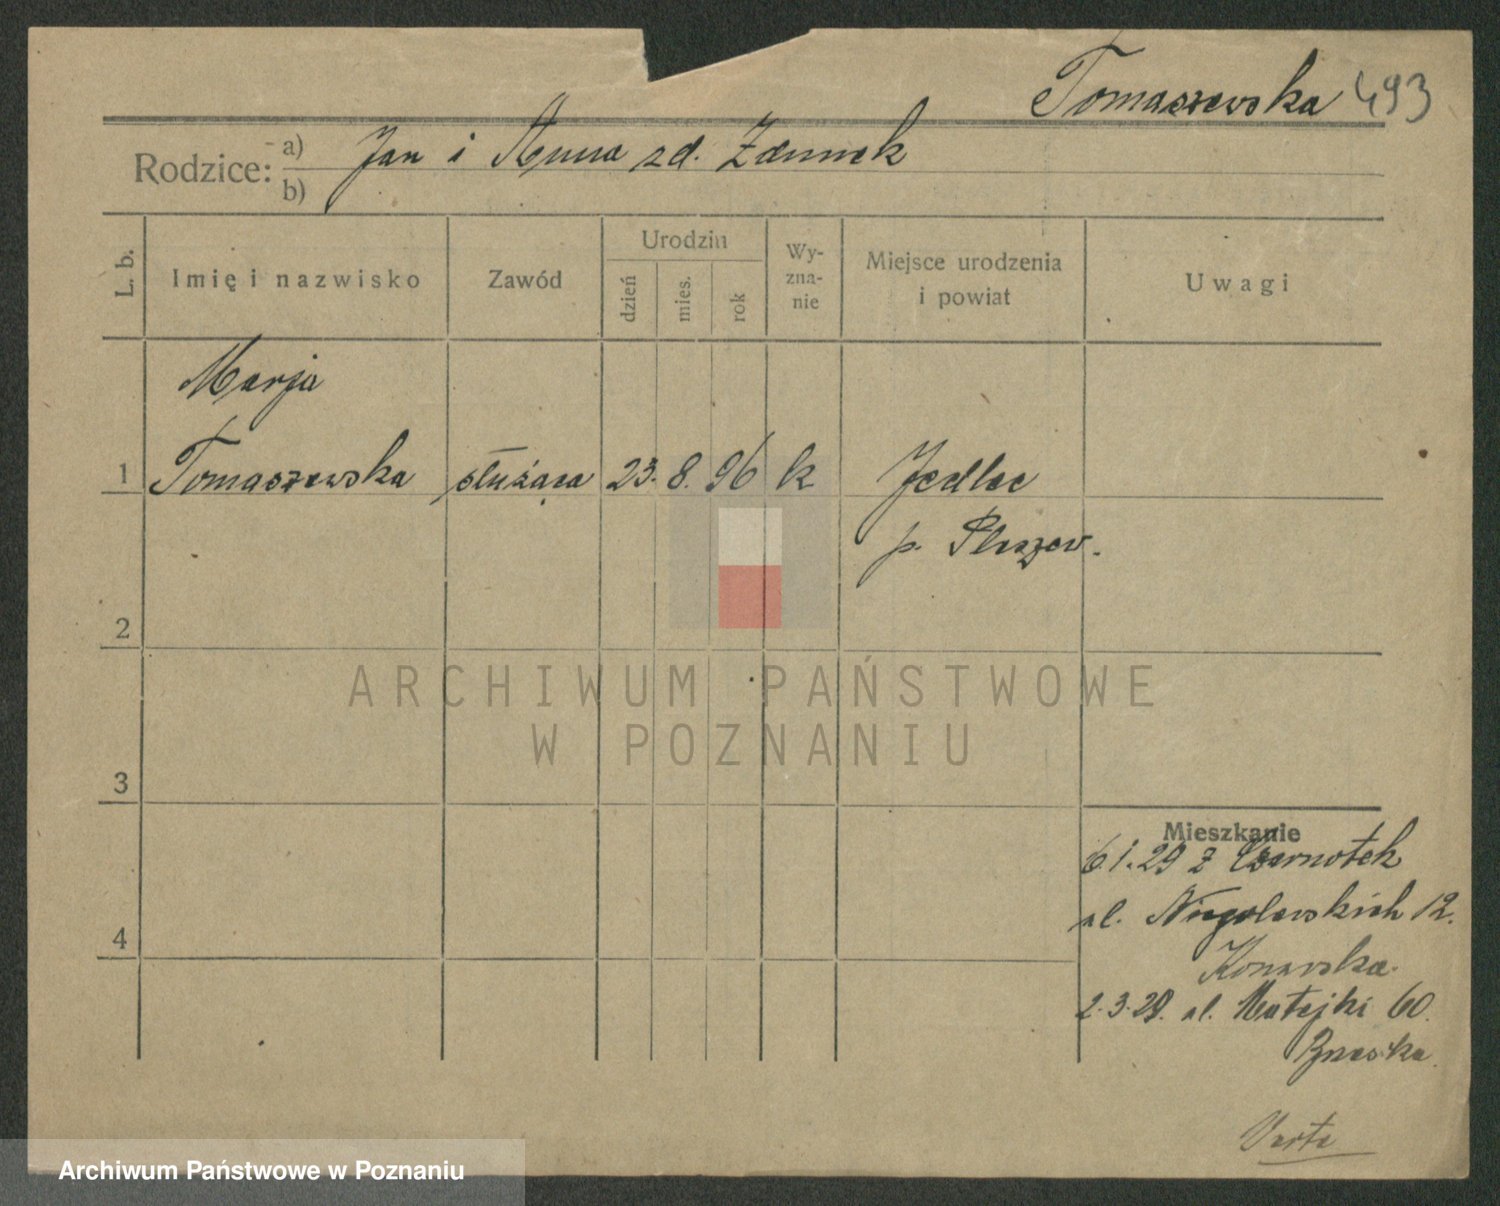 Tomaszewska 493
Rodzice: a) Jan i Anna zd. Zdunek
b)
L. b. Imię i nazwisko Zawód Urodzin dzień mies. rok Wy-zna-nie Miejsce urodzenia i powiat Uwagi
Marja
1 Tomaszewska służąca 23. 8. 96 k Jedlec
p. Pleszew.
2
ARCHIWUM PAŃSTWOWE
W POZNANIU
3
Mieszkanie
6.1.29 z Czarnotek
ul. Niegolewskich 12.
Konarska.
2.3.29. ul. Matejki 60.
4
Archiwum Państwowe w Poznaniu